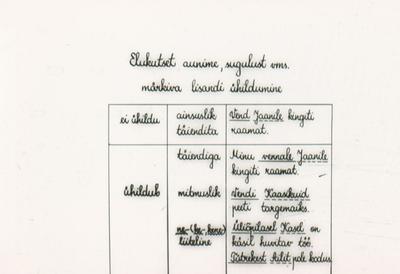 Elukutset aunime, sugulust vms.
märkiva lisandi ühildumine
ei ühildu
ainsuslik täiendita
Vend Jaanile kingiti
raamat.
täiendiga
Minu vennale Jaanile
kingiti raamat.
ühildub
mitmuslik
Vendi Kaasikuid
peeti targemaiks.
ne- (ke-, kene)
tüteline
Üliõpilasel Kasel on
käsil huvitav töö.
Tütrekest Astit pole kodus